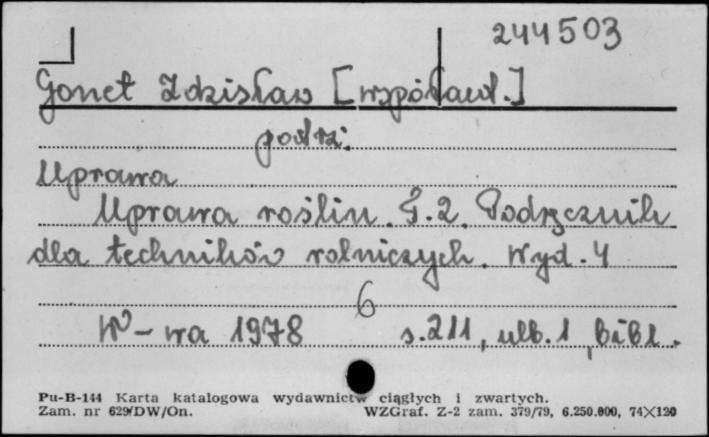 244503
Gonet Zdzisław [współaut.]
podrz:
Uprawa
Uprawa roślin. T.2. Podręcznik
dla techników rolniczych. Wyd. 4
6
W-wa 1978 s. 211, ulb. 1, bibl.
Pu-B-144 Karta katalogowa wydawnictw ciągłych i zwartych.
Zam. nr 629/DW/On. WZGraf. Z-2 zam. 379/79, 6.250.000, 74×120